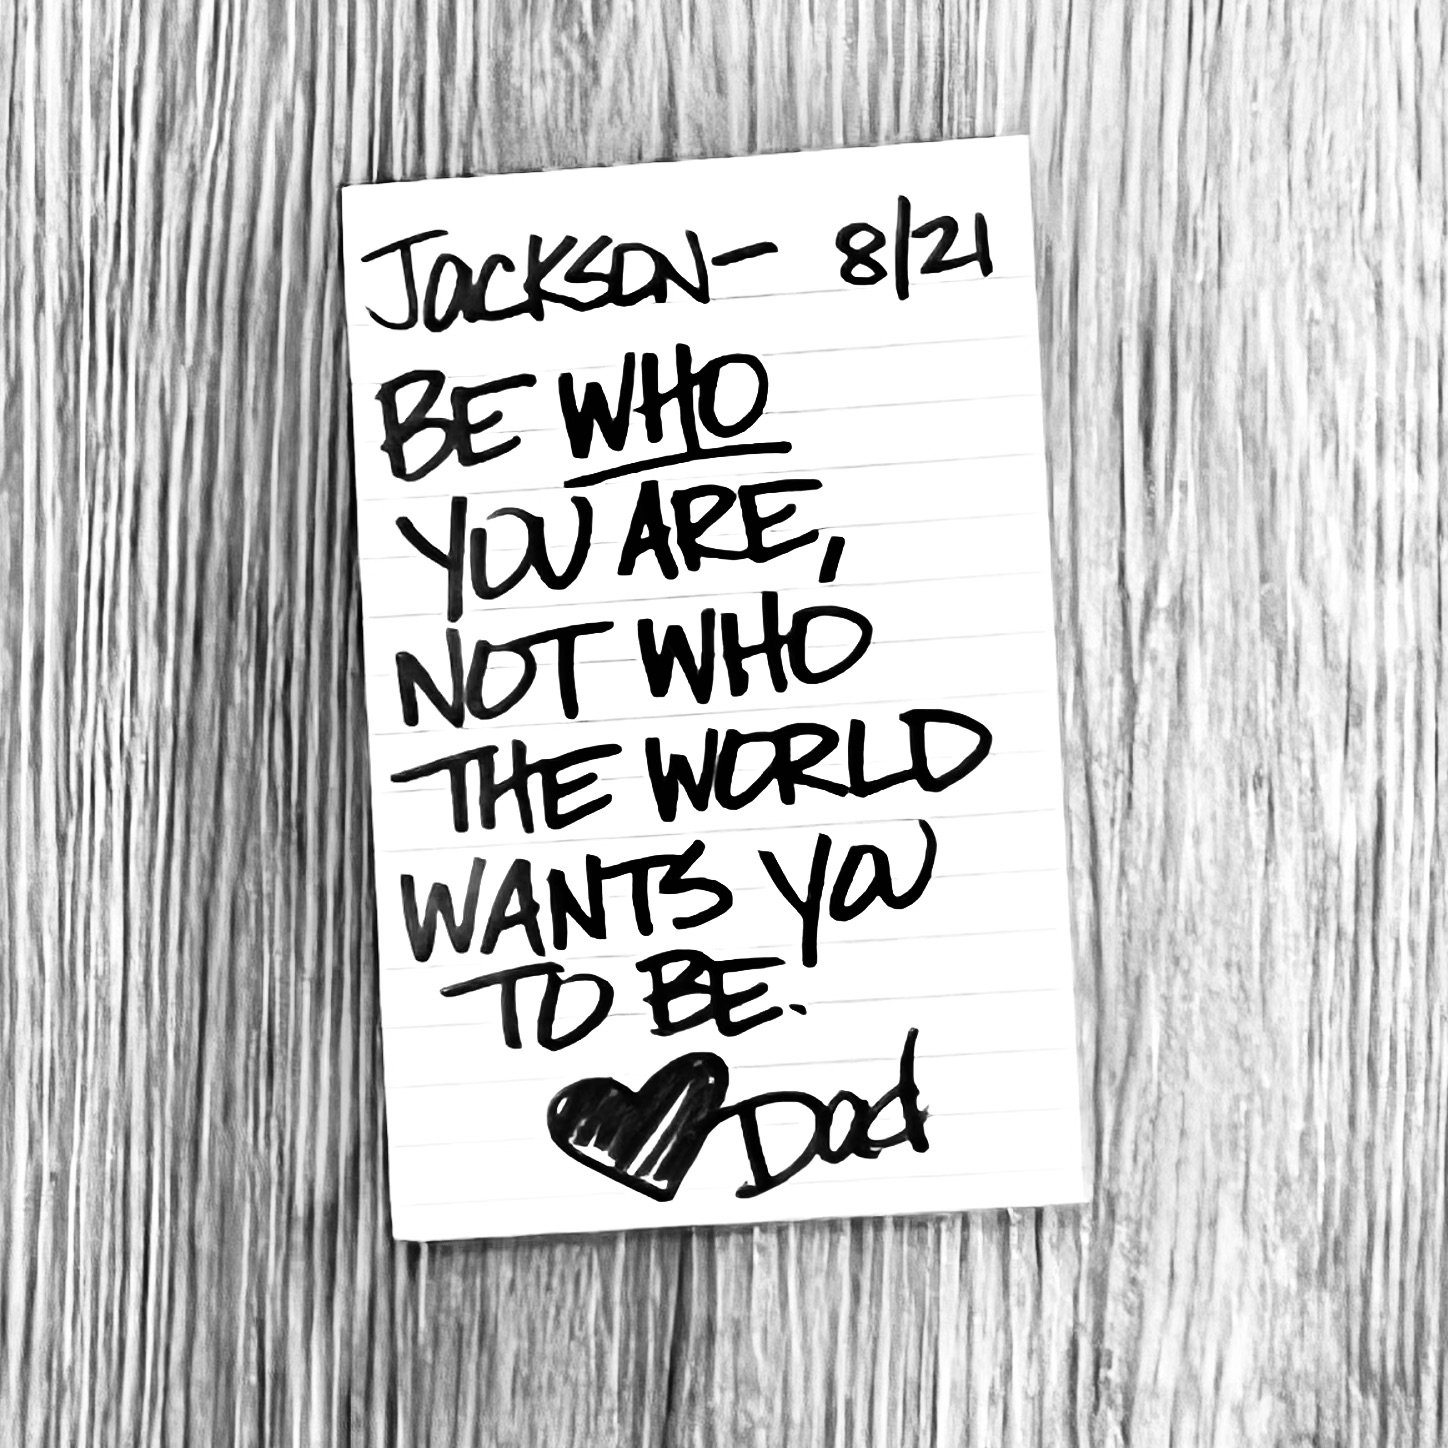 Jackson- 8/21
BE WHO
YOU ARE,
NOT WHO
THE WORLD
WANTS YOU
TO BE.
♥ Dad